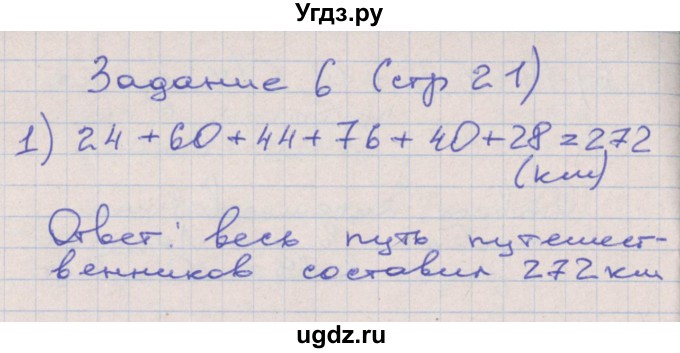 Угдз.ру
Задание 6 (стр 21)
1) 24+60+44+76+40+28=272
(км)
Ответ: весь путь путешест-
венников составил 272км
ugdz.ru